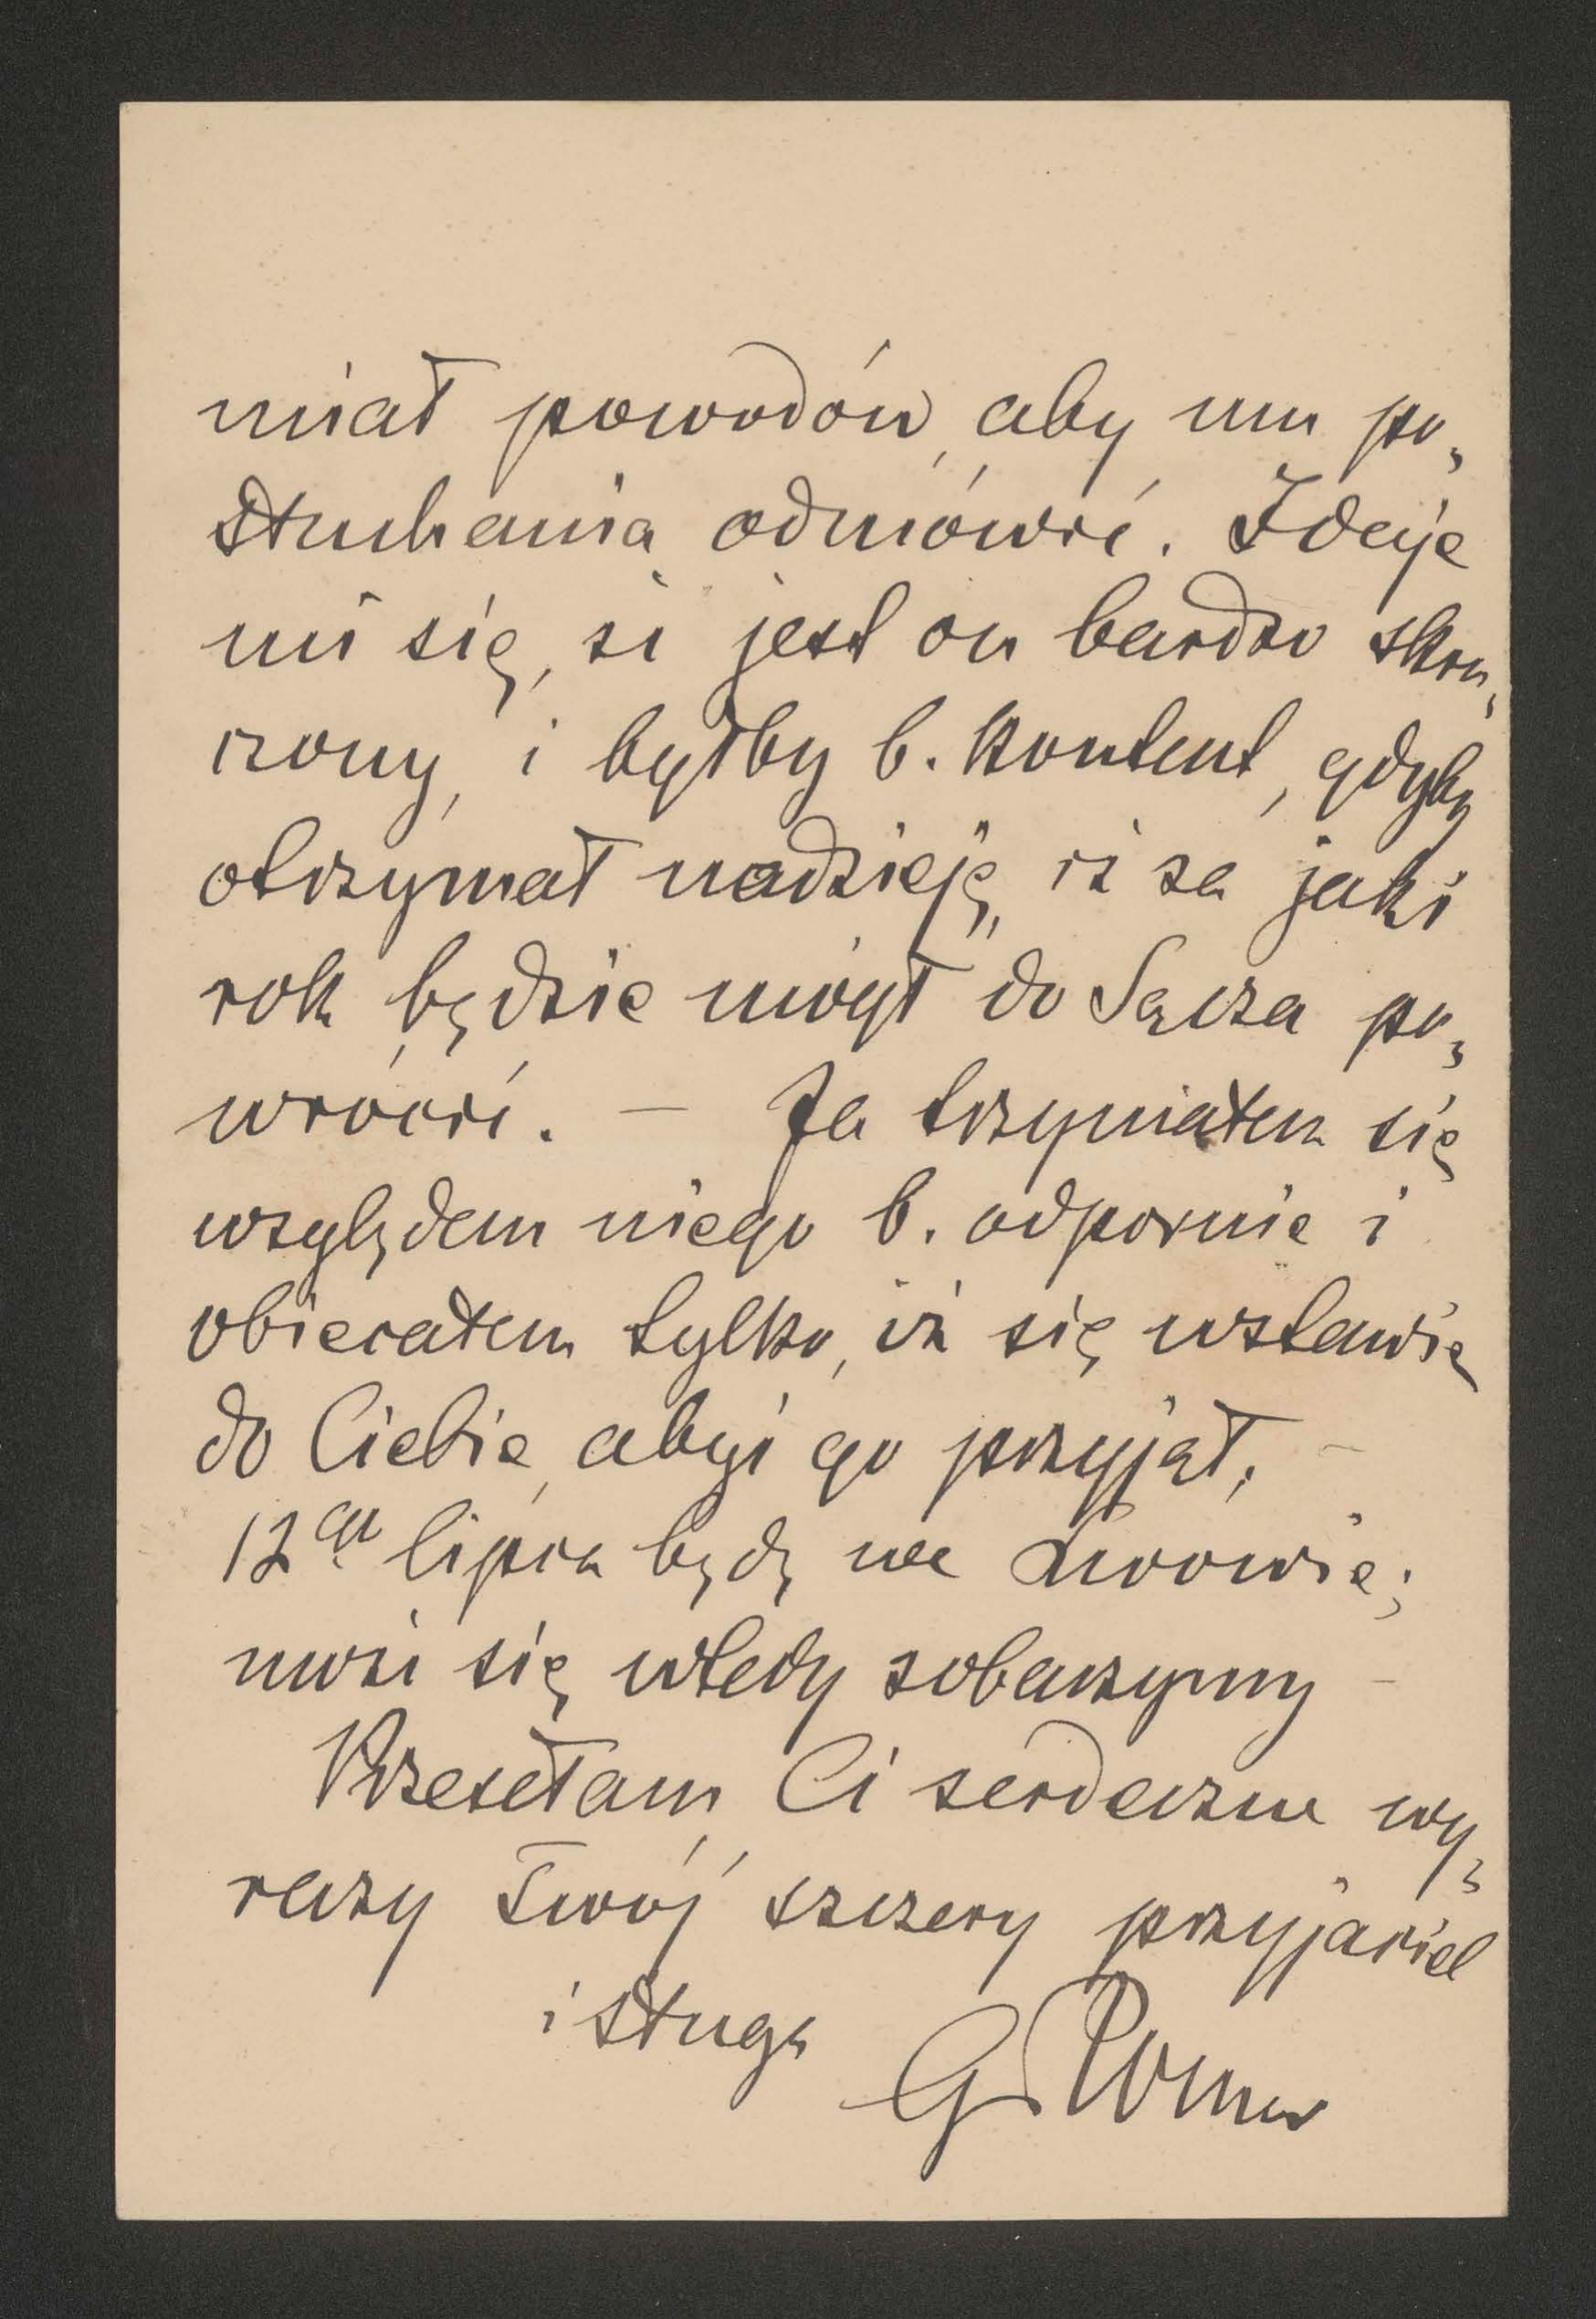 miał powodów, aby mu po„
słuchania odmówić. Zdaje
mi się, że jest on bardzo skru„
szony, i byłby b. kontent, gdyby
otrzymał nadzieję, iż za jaki
rok będzie mógł do Sącza po„
wrócić. — Ja trzymałem się
względem niego b. odpornie i
obiecałem tylko, iż się wstawię
do Ciebie, abyś go przyjął. —
12go lipca będę we Lwowie;
może się wtedy zobaczymy —
Przesełam Ci serdeczne wy„
razy Twój szczery przyjaciel
i sługa
G Romer